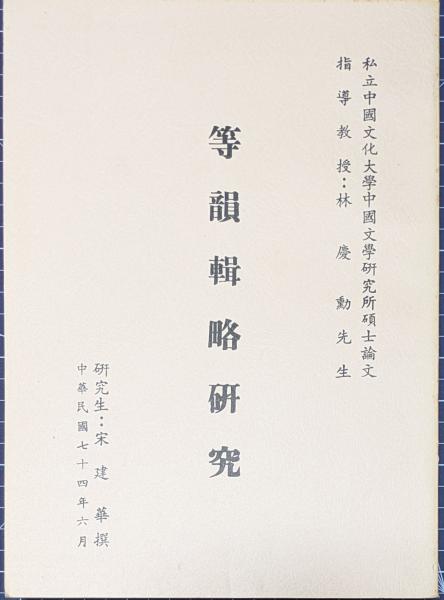 私立中國文化大學中國文學研究所碩士論文
指導教授：林慶勳先生
等韻輯略研究
研究生：宋建華撰
中華民國七十四年六月